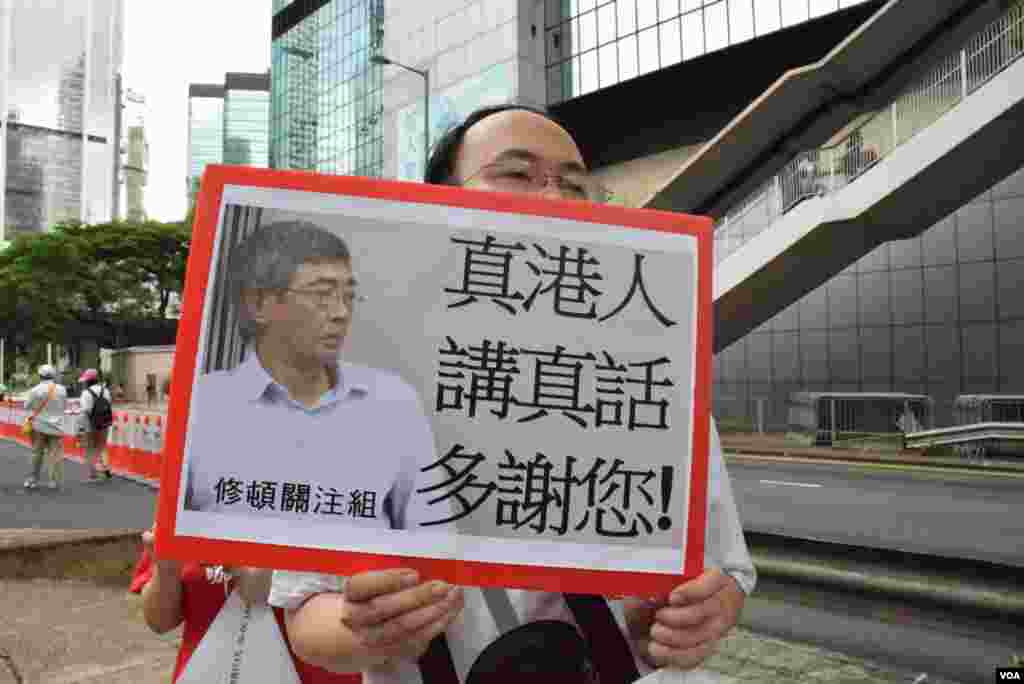 真港人
講真話
多謝您!
修頓關注組
VOA